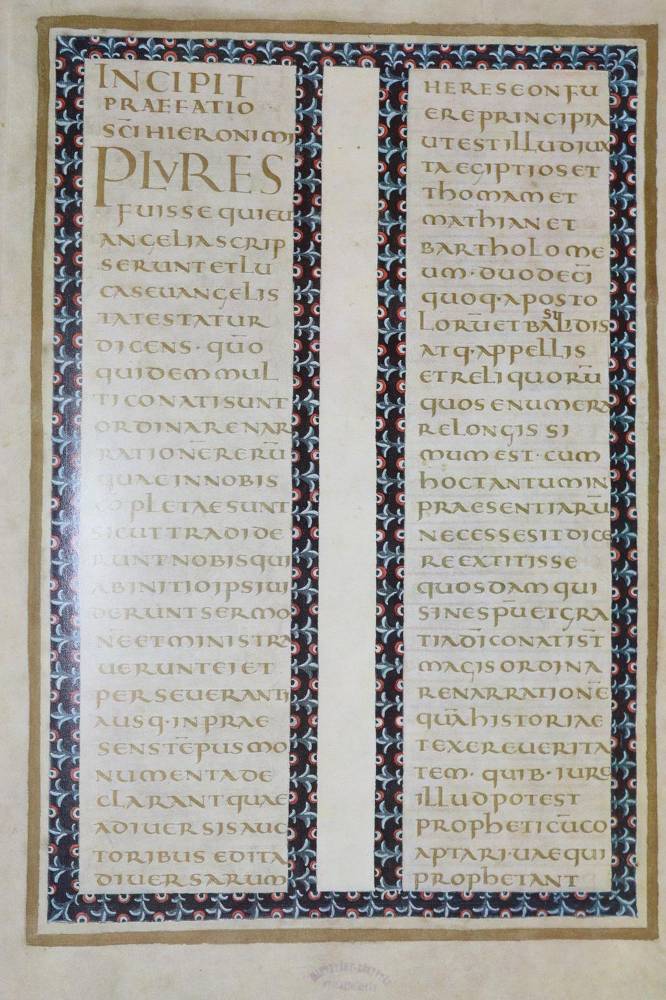 INCIPIT
PRAEFATIO
SCĪ HIERONIMI
PLURES
FUISSE QUI EU
ANGELIA SCRIP
SERUNT ET LU
CAS EUANGELIS
TA TESTATUR
DICENS · QUŌ
QUIDEM MUL
TI CONATI SUNT
ORDINARE NAR
RATIONĒ RERŪ
QUAE IN NOBIS
CŌPLETAE SUNT
SICUT TRADIDE
RUNT NOBIS QUI
AB INITIO IPSI UI
DERUNT SERMO
NĒ ET MINISTRA
UERUNT EI ET
PERSEUERANTI
A USQ · IN PRAE
SENS TĒPUS MO
NUMENTA DE
CLARANT QUAE
A DIUERSIS AUC
TORIBUS EDITA
DIUERSARUM
HERESEON FU
ERE PRINCIPIA
UT EST ILLUD IUX
TA EGIPTIOS ET
THOMAM ET
MATHIAN ET
BARTHOLOME
UM · DUODECĪ
QUOQ · APOSTO
LORŪ ET BASILIDIS
ATQ · APPELLIS
ET RELIQUORŪ
QUOS ENUMERA
RE LONGISSI
MUM EST · CUM
HOC TANTUM IN
PRAESENTIARŪ
NECESSE SIT DICE
RE EXTITISSE
QUOSDAM QUI
SINE SPŪ ET GRA
TIA DĪ CONATI ST̄
MAGIS ORDINA
RE NARRATIONĒ
QUĀ HISTORIAE
TEXERE UERITA
TEM · QUIB · IURE
ILLUD POTEST
PROPHETICŪ CO
APTARI · UAE QUI
PROPHETANT